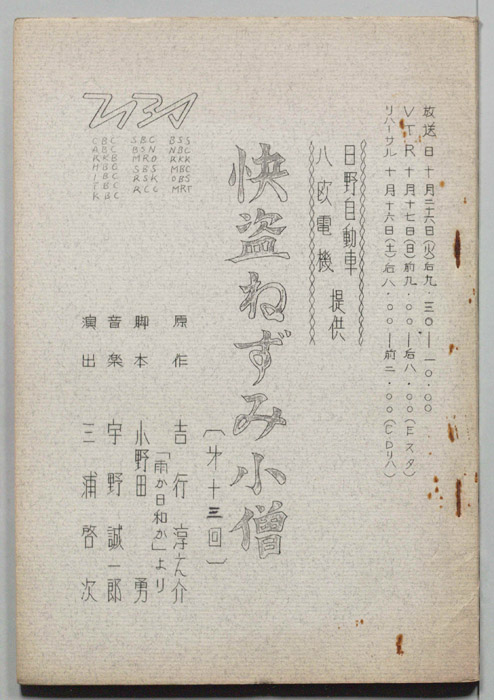 放送日 十月二十六日(火)后九.三〇―一〇.〇〇
VTR 十月十七日(日)前九.〇〇―后八.〇〇(Eスタ)
リハーサル 十月十六日(土)后八.〇〇―前二.〇〇(CDリハ)
日野自動車
八欧電機
提供
快盗ねずみ小僧
(才十三回)
原作 吉行淳之介
「雨か日和か」より
脚本 小野田 勇
音楽 宇野誠一郎
演出 三浦啓次
CBC SBC BSS
ABC BSN NBC
RKB MRO RKK
HBC SBS MBC
IBC RSK OBS
KBC RCC MRT